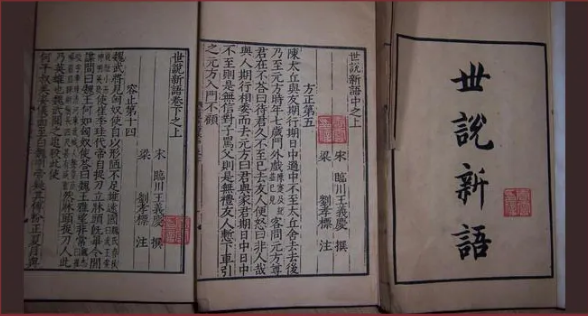 世說新語
世說新語中之上
宋 臨川王義慶 撰
梁 劉孝標 注
方正第五
陳太丘與友期行期日中過中不至太丘舍去去後
乃至元方時年七歲門外戲客問元方尊
君在不荅曰待君久不至已去友人便怒曰非人哉
與人期行相委而去元方曰君與家君期日中日中
不至則是無信對子罵父則是無禮友人慙下車引
之元方入門不顧
世說新語卷下之上
宋 臨川王義慶 撰
梁 劉孝標 注
容止第十四
魏武將見匈奴使自以形陋不足雄遠國
使崔季珪代帝自捉刀立牀頭旣畢令閒
諜問曰魏王何如匈奴使荅曰魏王雅望非常
然牀頭捉刀人此
乃英雄也魏武聞之追殺此使
何平叔美姿儀面至白魏明帝疑其傅粉正夏月與